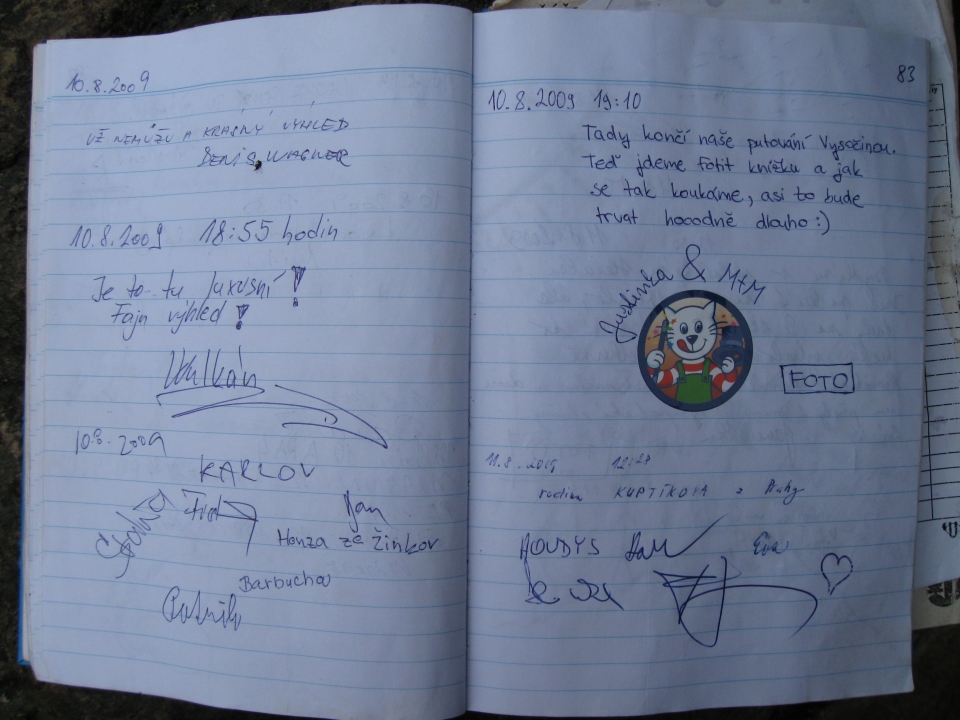 10.8.2009
UŽ NEMŮŽU A KRÁSNÝ VÝHLED
DENIS WAGNER
10.8.2009 18:55 hodin.
Je to tu luxusní!
Fajn výhled!
10.8.2009
KARLOV
Honza ze Žinkov
Barbucha
83
10.8.2009 19:10
Tady končí naše putování Vysočinou.
Teď jdeme fotit knížku a jak
se tak koukáme, asi to bude
trvat hooodně dlouho :)
Justinka & M+M
FOTO
11.8.2009
rodina z Prahy
HOUDYS
Eva